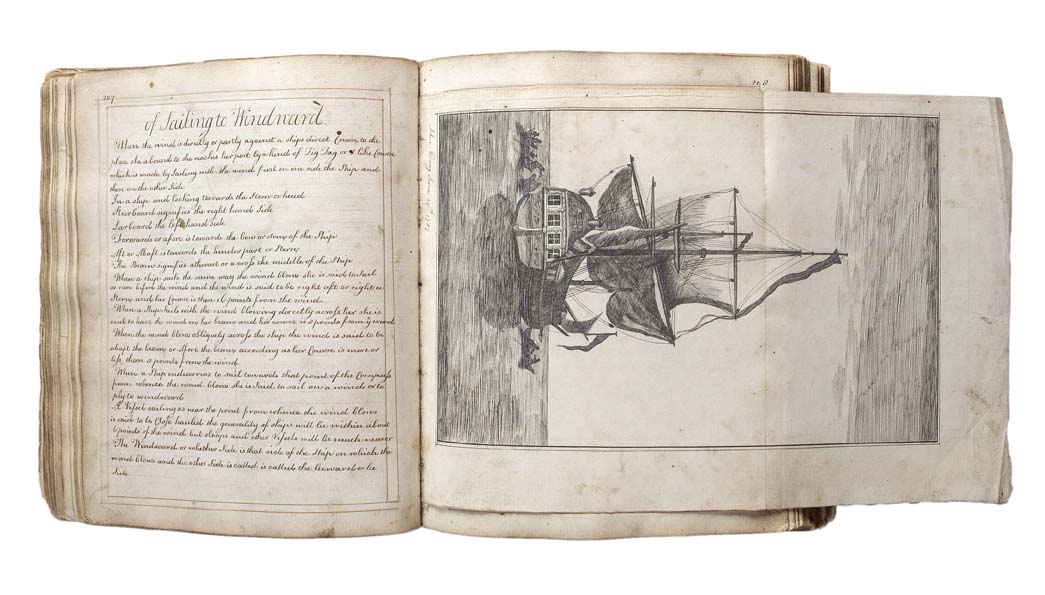 207
of Sailing to Windward
When the wind is directly or partly against a ships direct Course to the
place she is bound to she reaches her port by a kind of Zig Zag or like Course
which is made by Sailing with the wind first on one side the Ship and
then on the other Side
In a ship and looking towards the Stem or head
Starboard signifies the right hand Side
Larboard the left hand side
Forwards or afore is towards the bow or stem of the Ship
Aft or Abaft is towards the hinder part or Stern
The Beam signifies athwart or across the middle of the Ship
When a ship sails the same way the wind blows she is said to Sail
or run before the wind and the wind is said to be right aft or right a
Stern and her Course is then 16 points from the wind
When a Ship Sails with the wind blowing directly across her she is
said to have the wind on her beam and her course is 8 points from ye wind
When the wind blows obliquely across the ship the wind is said to be
abaft the beam or Afore the beam according as her Course is more or
less than 8 points from the wind
When a Ship endeavours to sail towards that point of the Compass
from whence the wind blows she is said to sail on a wind or to
ply to windward
A Vessel sailing as near the point from whence the wind blows
is said to be Close hauled the generality of ships will lie within about
6 points of the wind but sloops and other Vessels will lie much nearer
The Windward or whether Side is that side of the Ship on which the
wind blows and the other Side is called is called the leeward or lee
Side
208